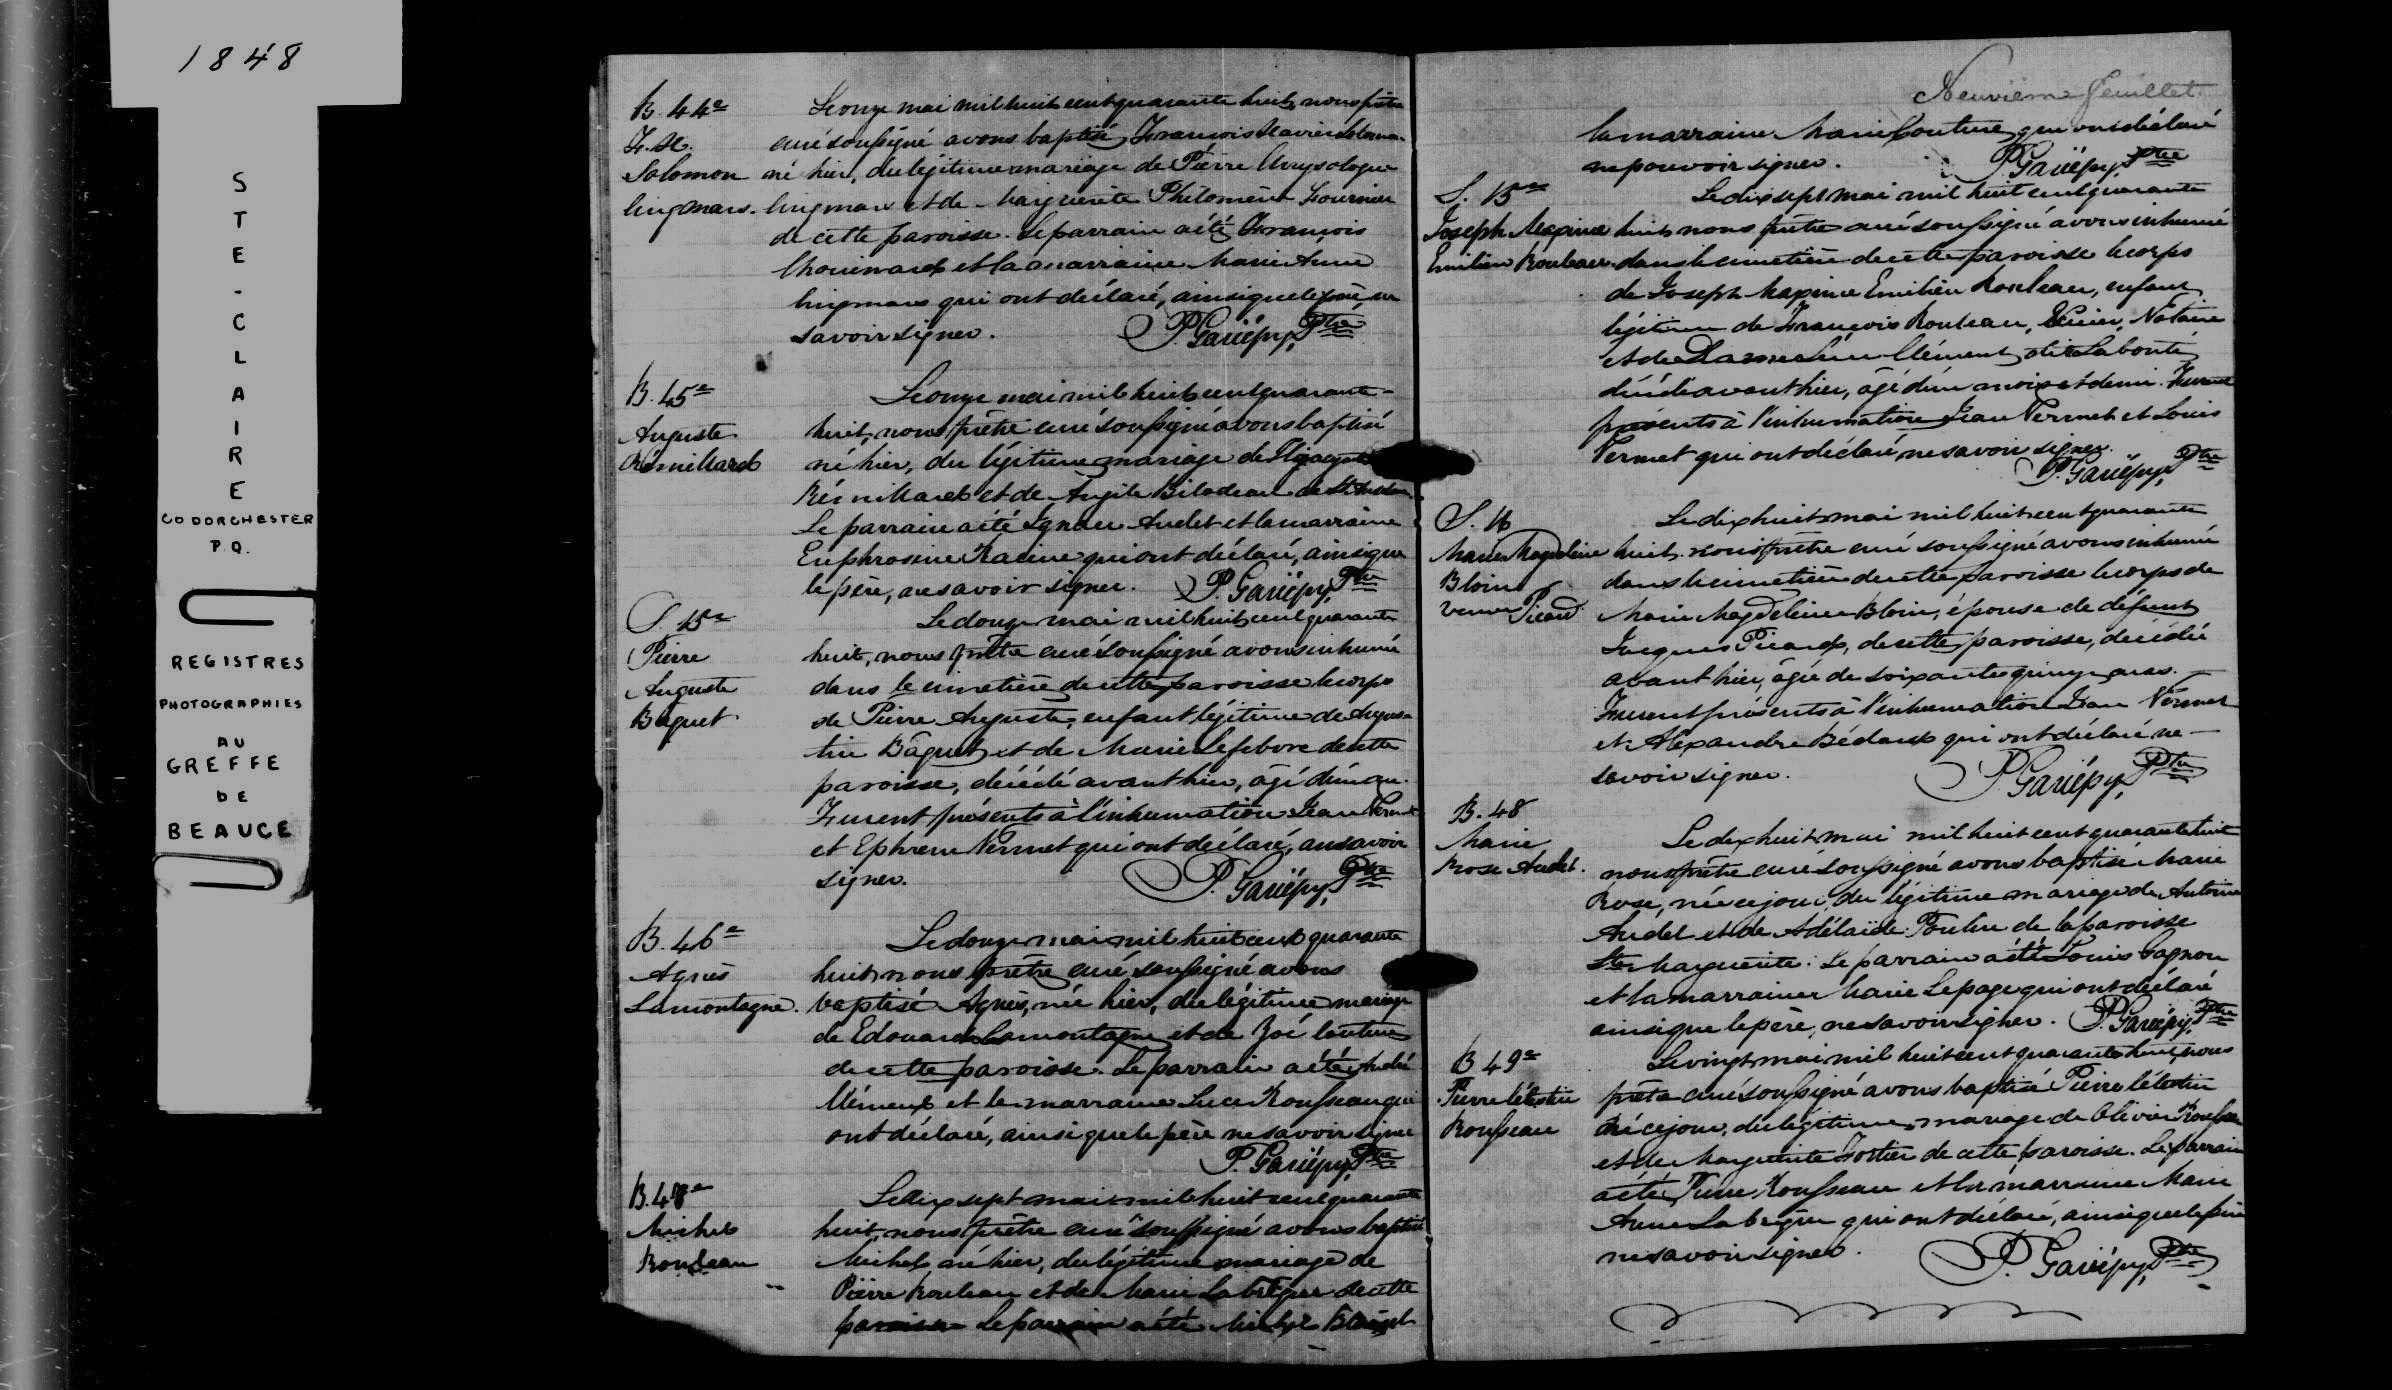 1848
STE-CLAIRE
CO DORCHESTER
P.Q.
REGISTRES
PHOTOGRAPHIES
AU
GREFFE
DE
BEAUCE
B. 44e
F. X.
Salomon
Cinqmars.
Le onze mai mil huit cent quarante huit, nous prêtre
curé soussigné avons baptisé François Xavier Salomon
né hier, du légitime mariage de Pierre Chrysologue
Cinqmars et de Marguerite Philomène Fournier
de cette paroisse. Le parrain a été François
Chouinard et la marraine Marie Anne
Cinqmars qui ont déclaré, ainsi que le père, ne
savoir signer. P. Gariépy, Ptre
B. 45e
Auguste
Rémillard
Le onze mai mil huit cent quarante-
huit, nous prêtre curé soussigné avons baptisé
né hier, du légitime mariage de
Rémillard et de Angile Bilodeau de St
Le parrain a été Ignace Audet et la marraine
Euphrosine Racine qui ont déclaré, ainsi que
le père, ne savoir signer. P. Gariépy, Ptre
S. 15e
Pierre
Auguste
Baquet
Le douze mai mil huit cent quarante
huit, nous prêtre curé soussigné avons inhumé
dans le cimetière de cette paroisse le corps
de Pierre Auguste, enfant légitime de Augus-
tin Bâquet et de Marie Lefebvre de cette
paroisse, décédé avant hier, âgé d'un an.
Furent présents à l'inhumation Jean Vermet
et Ephrem Vermet qui ont déclaré, ne savoir
signer. P. Gariépy, Ptre
B. 46e
Agnès
Lamontagne.
Le douze mai mil huit cent quarante
huit, nous prêtre curé soussigné avons
baptisé Agnès, née hier, du légitime mariage
de Edouard Lamontagne et de Zoé Couture
de cette paroisse. Le parrain a été André
Clément et la marraine Luce Rousseau qui
ont déclaré, ainsi que le père ne savoir signer
P. Gariépy, Ptre
B. 47e
Michel
Rouleau
Le dix sept mai mil huit cent quarante
huit, nous prêtre curé soussigné avons baptisé
Michel né hier, du légitime mariage de
Pierre Rouleau et de Marie Labrèque de cette
paroisse Le parrain a été Michel
Neuvième feuillet.
la marraine Marie Couture, qui ont déclaré
ne pouvoir signer. P. Gariépy, Ptre
S. 15e
Joseph Maxime
Emilien Rouleau
Le dix sept mai mil huit cent quarante
huit, nous prêtre curé soussigné avons inhumé
dans le cimetière de cette paroisse le corps
de Joseph Maxime Emilien Rouleau, enfant
légitime de François Rouleau, Ecuier, Notaire
et de Dame Clément dit Labonté
décédé avant hier, âgé d'un mois et demi. Furent
présents à l'inhumation Jean Vermet et Louis
Vermet qui ont déclaré ne savoir signer.
P. Gariépy, Ptre
S. 16
Marie Magdeleine
Blouin
veuve Picard
Le dix huit mai mil huit cent quarante
huit, nous prêtre curé soussigné avons inhumé
dans le cimetière de cette paroisse le corps de
Marie Magdeleine Blouin, épouse de défunt
Jacques Picard, de cette paroisse, décédée
avant hier, âgée de soixante quinze ans.
Furent présents à l'inhumation Jean Vermet
et Alexandre Bédard qui ont déclaré ne
savoir signer. P. Gariépy, Ptre
B. 48
Marie
Rose Audet.
Le dix huit mai mil huit cent quarante huit
nous prêtre curé soussigné avons baptisé Marie
Rose, née ce jour, du légitime mariage de Antoine
Audet et de Adélaïde Poulin de la paroisse
Ste Marguerite. Le parrain a été Louis Gagnon
et la marraine Marie Lepage qui ont déclaré
ainsi que le père, ne savoir signer. P. Gariépy, Ptre
B 49e
Pierre Célestin
Rousseau
Le vingt mai mil huit cent quarante huit, nous
prêtre curé soussigné avons baptisé Pierre Célestin
né ce jour, du légitime mariage de Olivier Rousseau
et de Marguerite Fortier de cette paroisse. Le parrain
a été Pierre Rousseau et la marraine Marie
Anne Labrèque qui ont déclaré, ainsi que le père
ne savoir signer. P. Gariépy, Ptre